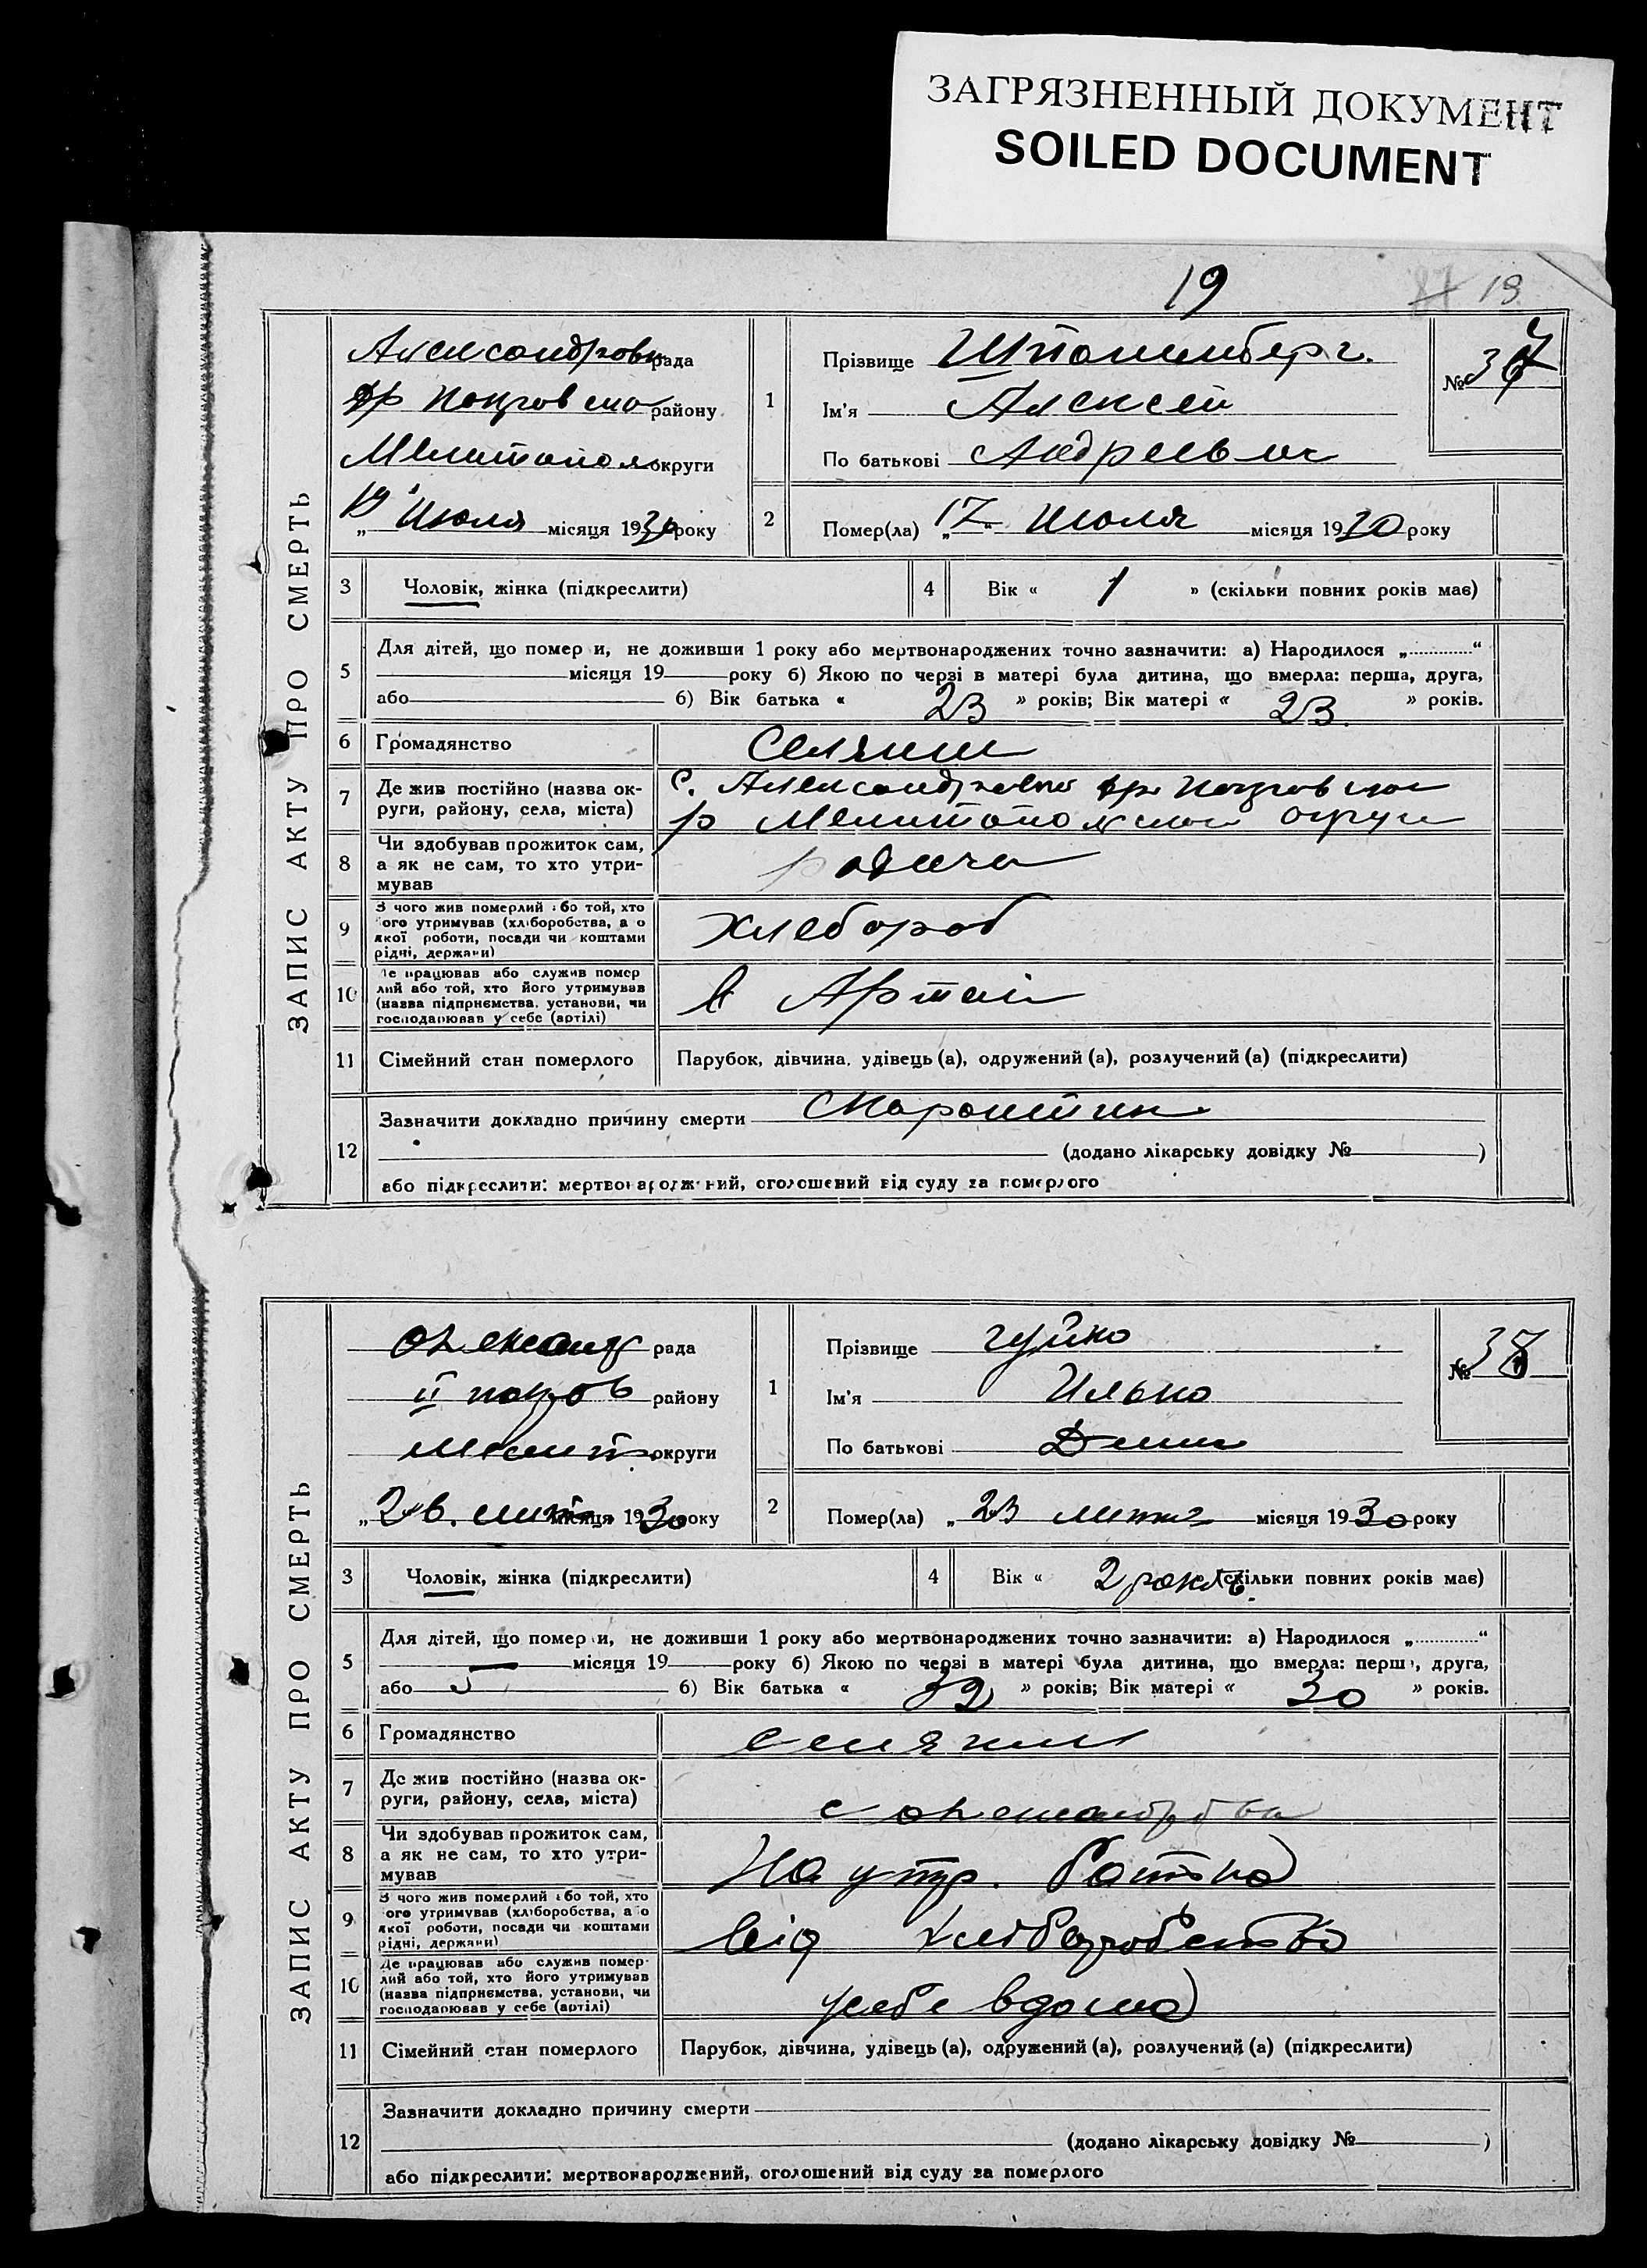 ЗАГРЯЗНЕННЫЙ ДОКУМЕНТ
SOILED DOCUMENT
19
19
ЗАПИС АКТУ ПРО СМЕРТЬ
Александровк рада
району
Мелитопол округи
„19 Июля місяця 1930 року
1
Прізвище
Ім'я Алексей
По батькові Андреевич
№ 37
2
Помер(ла) „17" Июля місяця 1930 року
3
Чоловік, жінка (підкреслити)
4
Вік « 1 » (скільки повних років має)
5
Для дітей, що помер и, не доживши 1 року або мертвонароджених точно зазначити: а) Народилося „ “
місяця 19 року б) Якою по черзі в матері була дитина, що вмерла: перша, друга,
або б) Вік батька « 23 » років; Вік матері « 23 » років.
6
Громадянство
Селянин
7
Де жив постійно (назва ок-
руги, району, села, міста)
с. Александровка
р Мелитопольской округи
8
Чи здобував прожиток сам,
а як не сам, то хто утри-
мував
9
З чого жив померлий або той, хто
ого утримував (хліборобства, а о
якої роботи, посади чи коштами
рідні, держави)
хлебороб
10
Де працював або служив помер
лий або той, хто його утримував
(назва підприємства, установи, чи
господарював у себе (артілі)
в Артели
11
Сімейний стан померлого
Парубок, дівчина, удівець (а), одружений (а), розлучений (а) (підкреслити)
12
Зазначити докладно причину смерти
(додано лікарську довідку № )
або підкреслити: мертвонароджений, оголошений від суду за померлого
ЗАПИС АКТУ ПРО СМЕРТЬ
рада
ІІ покров району
Мелит округи
місяця 1930 року
1
Прізвище гуйко
Ім'я Илько
По батькові
№ 38
2
Помер(ла) „23 місяця 1930 року
3
Чоловік, жінка (підкреслити)
4
Вік « 2 (скільки повних років має)
5
Для дітей, що помер и, не доживши 1 року або мертвонароджених точно зазначити: а) Народилося „ “
місяця 19 року б) Якою по черзі в матері була дитина, що вмерла: перш, друга,
або б) Вік батька « 32 » років; Вік матері « 30 » років.
6
Громадянство
селянин
7
Де жив постійно (назва ок-
руги, району, села, міста)
с
8
Чи здобував прожиток сам,
а як не сам, то хто утри-
мував
На утр. батька
9
З чого жив померлий або той, хто
ого утримував (хліборобства, а о
якої роботи, посади чи коштами
рідні, держави)
від хліборобства
10
Де працював або служив помер-
лий або той, хто його утримував
(назва підприємства, установи, чи
господарював у себе (артілі)
усебе вдома
11
Сімейний стан померлого
Парубок, дівчина, удівець (а), одружений (а), розлучений (а) (підкреслити)
12
Зазначити докладно причину смерти
(додано лікарську довідку № )
або підкреслити: мертвонароджений, оголошений від суду за померлого